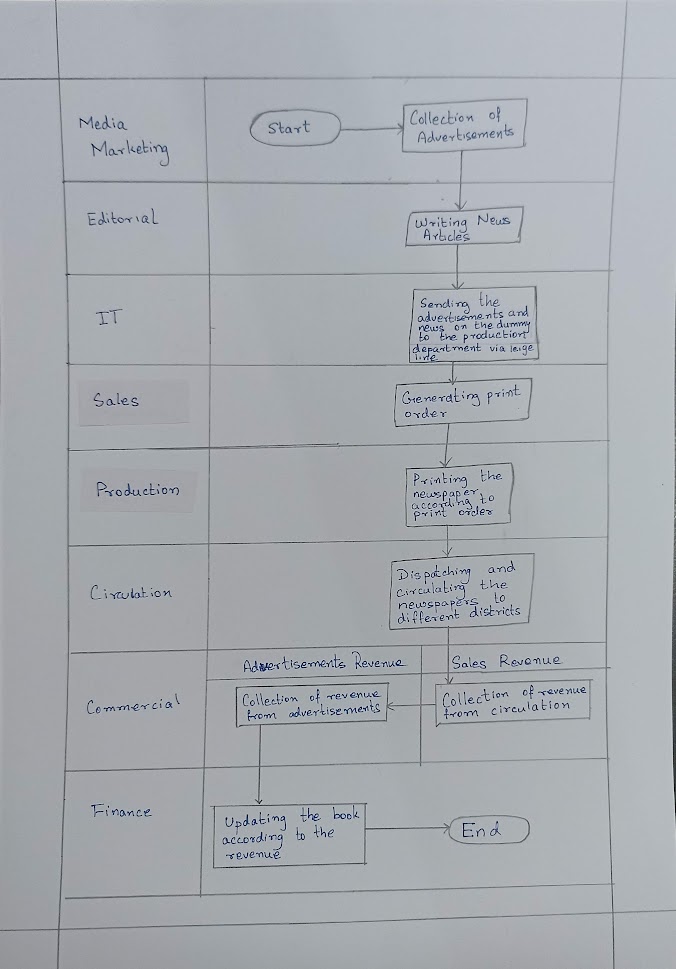 Media
Marketing
Start
Collection of
Advertisements
Editorial
Writing News
Articles
IT
Sending the
advertisements and
news on the dummy
to the production
department via leige
line
Sales
Generating print
order
Production
Printing the
newspaper
according to
print order
Circulation
Dispatching and
circulating the
newspapers to
different districts
Commercial
Advertisements Revenue
Sales Revenue
Collection of revenue
from advertisements
Collection of revenue
from circulation
Finance
Updating the book
according to the
revenue
End